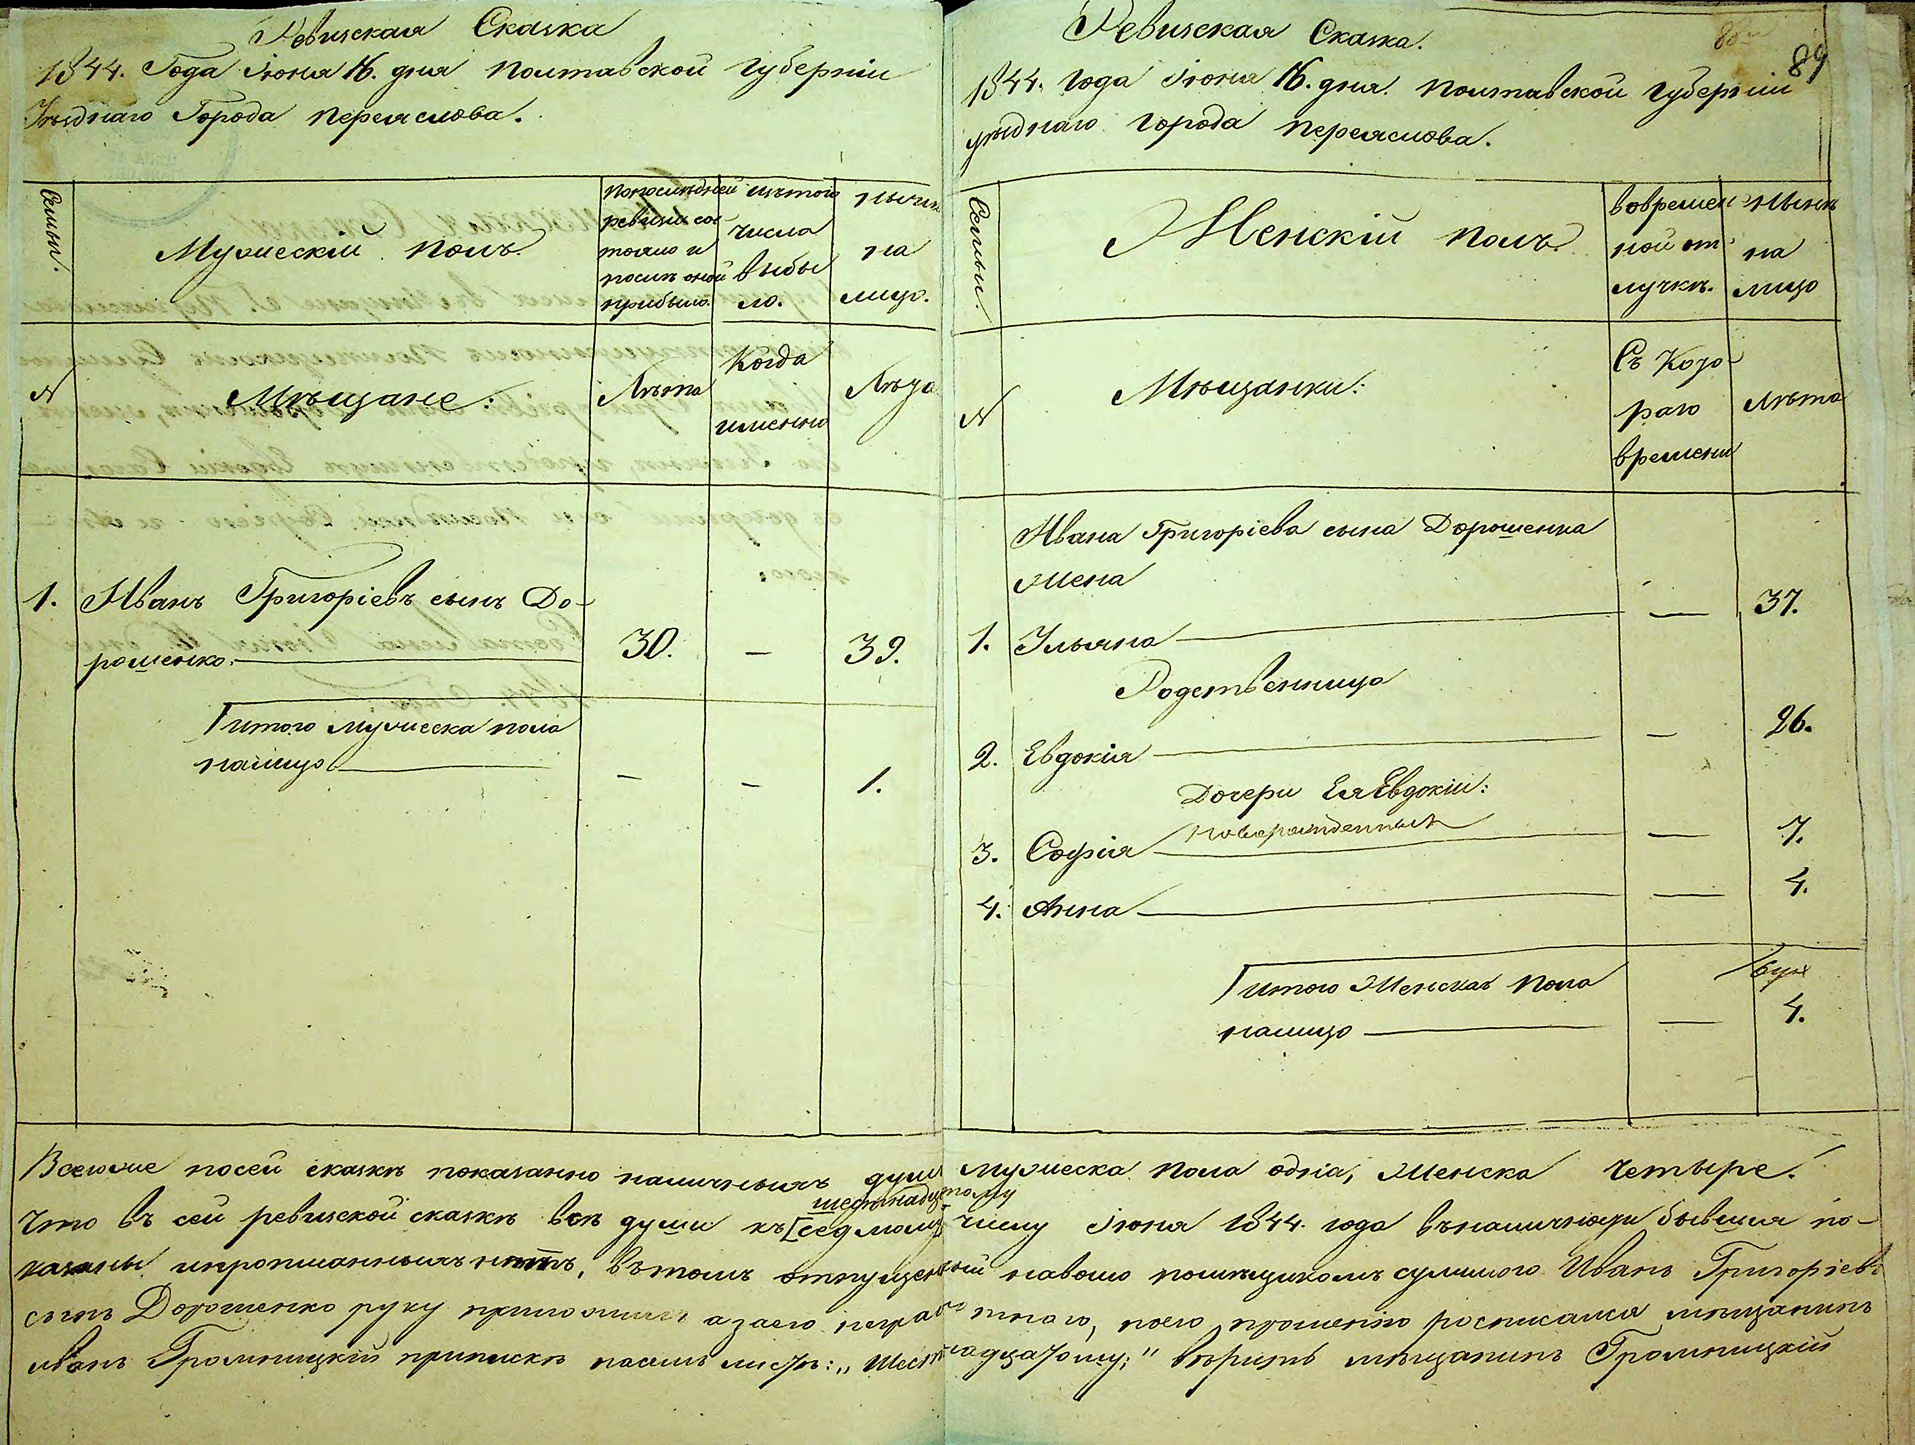 Ревизская Сказка
1844. Года Іюня 16. дня Полтавской Губерніи
Уѣзднаго Города Переяслова.
Семьи.
Мужескій полъ.
По последней
ревизіи сос
тояло и
послѣ оной
прибыло.
изтого
числа
выбы
ло.
Нынѣ
на
лицо.
N
Мѣщане:
Лѣта
Когда
именно
Лѣта
1. Иванъ Григоріевъ сынъ До-
рошенко. 30. — 39.
итого мужеска пола
налицо — — 1.
Ревизская Сказка.
89
1844. года Іюня 16. дня. Полтавской Губерніи
уѣзднаго города Переяслова.
Семьи.
Женскій полъ.
вовремен
ной от
лучкѣ.
Нынѣ
на
лицо
N
Мѣщанки:
Съ Кото
раго
времени
Лѣта
Ивана Григоріева сына Дорошенка
жена
1. Ульяна — — 37.
Родственница
2. Евдокія — — 26.
Дочери Ея Евдокіи:
новорожденныя
3. Софія — — 7.
4. Анна — — 4.
итого Женска Пола
налицо — — 4.
Всего же посей сказкѣ показанно наличныхъ душъ мужеска пола одна, Женска четыре.
шестнадцатому
Что въ сей ревизской сказкѣ всѣ души къ [седмому] числу Іюня 1844. года вналичности бывшия по-
казаны и прописанныхъ нѣтъ, вътомъ отпущенный наволю помѣщикомъ Иванъ Григоріевъ
сынъ Дорошенко руку приложилъ азаего неграмотнаго, поего прошенію росписался мѣщанинъ
Иванъ Громницкій припискѣ насемъ листѣ: „Шестнадцатому;" вѣритъ мѣщанинъ Громницкій